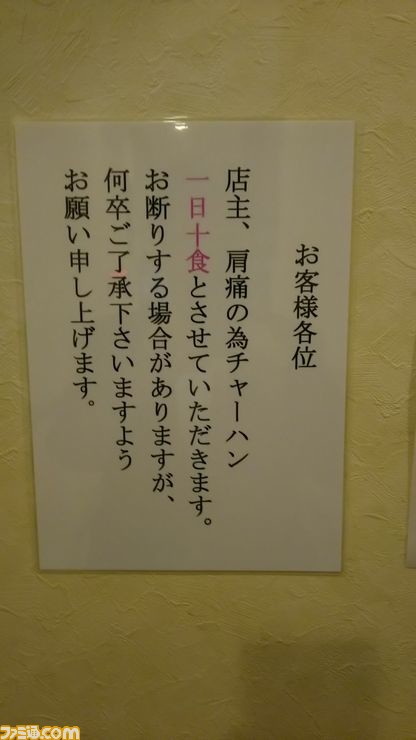 お客様各位
店主、肩痛の為チャーハン
一日十食とさせていただきます。
お断りする場合がありますが、
何卒ご了承下さいますよう
お願い申し上げます。
ファミ通.com